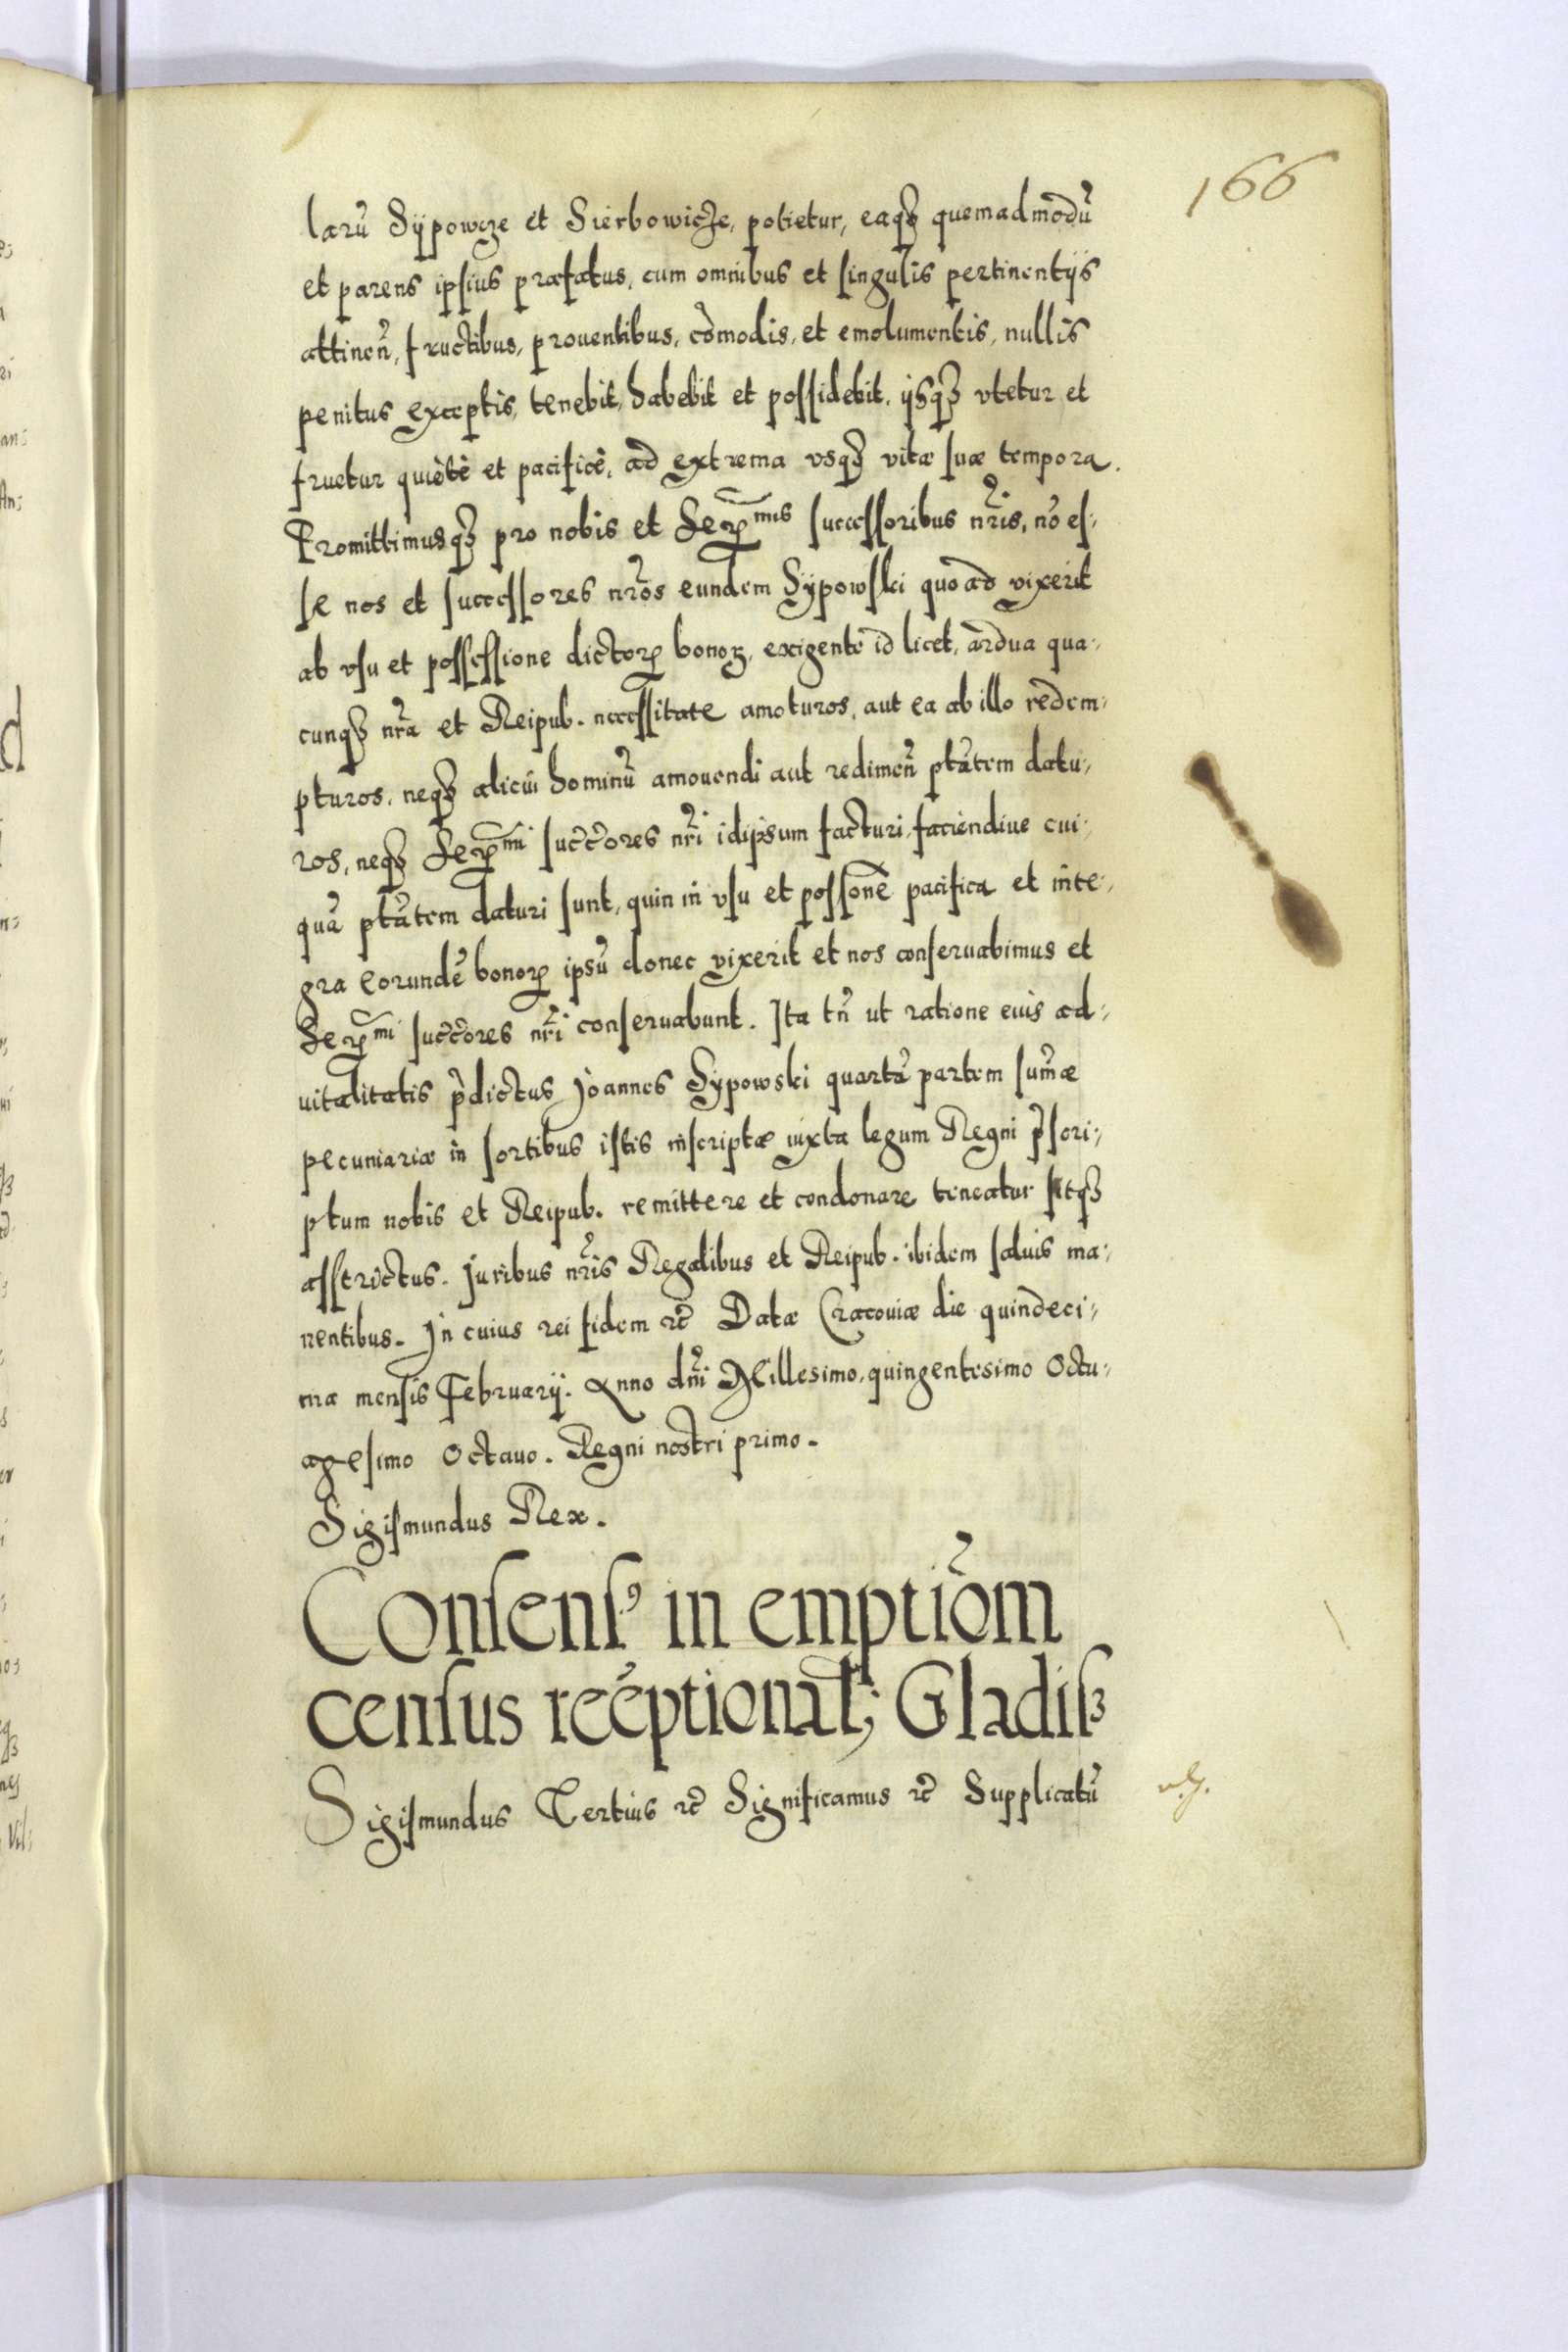 166
larū Sÿpowcze et Sierbowicze, potietur, eaqȝ quemadmodū
et parens ipsius præfatus, cum omnibus et singulis pertinentijs
attinen̄, fructibus, prouentibus, cōmodis, et emolumentis, nullis
penitus exceptis, tenebit, habebit et possidebit, ijsqȝ vtetur et
fruetur quietè et pacificè, ad extrema vsqȝ vitæ suæ tempora.
Promittimusqȝ pro nobis et Serꝫmis successoribus nr̄is, nō es-
se nos et successores nr̄os eundem Sÿpowski quoad vixerit
ab vsu et possessione dictorꝫ bonorꝫ, exigente id licet, ardua qua-
cunqȝ nr̄a et Reipub. necessitate amoturos, aut ea ab illo redem-
pturos, neqȝ alicui hominū amouendi aut redimen̄ ptātem datu-
ros, neqȝ Serꝫmi succ̄ores nr̄i idipsum facturi, faciendiue cui-
quā ptātem daturi sunt, quin in vsu et possōne pacifica et inte-
gra eorundē bonorꝫ ipsū donec vixerit et nos conseruabimus et
Serꝫmi succ̄ores nr̄i conseruabunt. Ita tn̄ ut ratione eius ad-
uitalitatis p̄dictus Joannes Sypowski quartā partem sum̄æ
pecuniariæ in sortibus istis inscriptæ iuxta legum Regni p̄scri-
ptum nobis et Reipub. remittere et condonare teneatur sitqȝ
asstrictus. Juribus nr̄is Regalibus et Reipub. ibidem saluis ma-
nentibus. In cuius rei fidem ꝛc̄ Datæ Cracouiæ die quindeci-
ma mensis Februarij. Anno dn̄i Millesimo, quingentesimo Octu-
agesimo Octauo. Regni nostri primo.
Sigismundus Rex.
Consensꝰ in emptiōm
census reēptional; Gladisȝ
Sigismundus Tertius ꝛc̄ Significamus ꝛc̄ Supplicatū